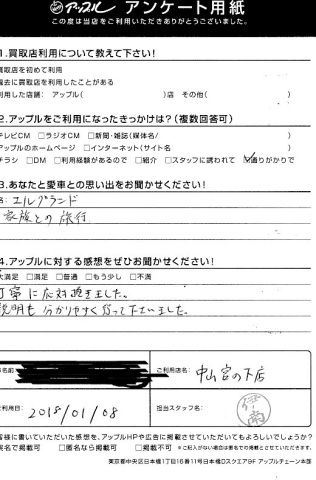 アップル アンケート用紙
この度は当店をご利用いただきありがとうございました。
1.買取店利用について教えて下さい!
買取店を初めて利用
過去に買取店を利用したことがある
利用した店舗: アップル( )店 その他( )
2.アップルをご利用になったきっかけは?(複数回答可)
テレビCM □ラジオCM □新聞・雑誌(媒体名/ )
アップルのホームページ □インターネット(サイト名 )
チラシ □DM □利用経験があるので □紹介 □スタッフに誘われて ☑通りがかりで
3.あなたと愛車との思い出をお聞かせください!
名: エルグランド
家族との旅行
4.アップルに対する感想をぜひお聞かせください!
大満足 □満足 □普通 □もう少し □不満
丁寧に応対頂きました。
説明も分かりやすく行って下さいました。
お名前
ご利用店名: 中山宮の下店
ご利用日: 2018/01/08
担当スタッフ名:
お客様に書いていただいた感想を、アップルHPや広告に掲載させていただいてもよろしいでしょうか?
実名で掲載可 □匿名なら掲載可 □掲載不可 ※ご記入がない場合は匿名での掲載とさせていただきます。
東京都中央区日本橋1丁目16番11号日本橋Dスクエア9F アップルチェーン本部